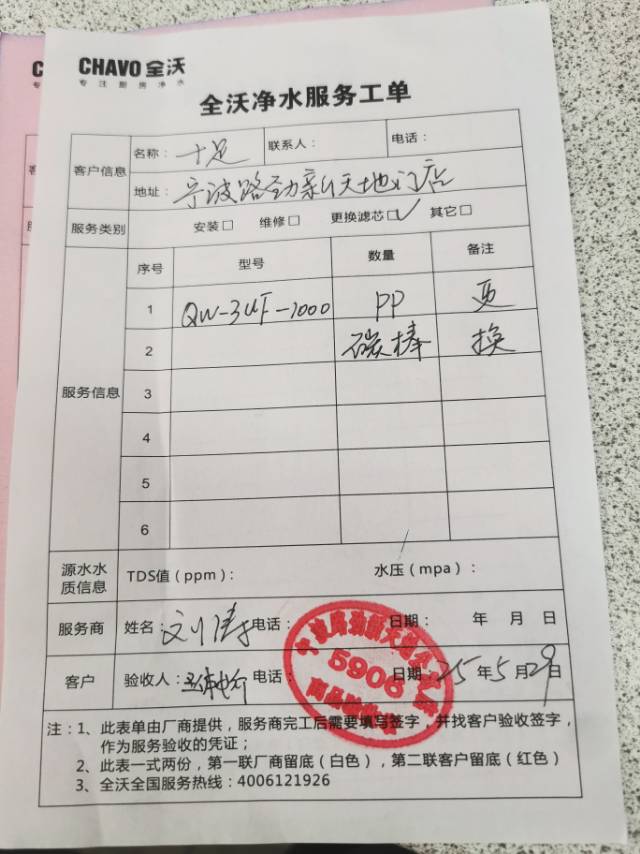 CHAVO 全沃
专注厨房净水
全沃净水服务工单
客户信息 名称：十足 联系人： 电话：
地址：宁波路劲新天地门店
服务类别 安装□ 维修□ 更换滤芯□✓ 其它□
服务信息 序号 型号 数量 备注
1 QW-3UF-1000 PP 更
2 碳棒 换
3
4
5
6
源水水质信息 TDS值（ppm）： 水压（mpa）：
服务商 姓名：刘涛 电话： 日期： 年 月 日
客户 验收人： 电话： 日期：25年5月29日
5906
商品验收章
注：1、此表单由厂商提供，服务商完工后需要填写签字，并找客户验收签字，
作为服务验收的凭证；
2、此表一式两份，第一联厂商留底（白色），第二联客户留底（红色）
3、全沃全国服务热线：4006121926